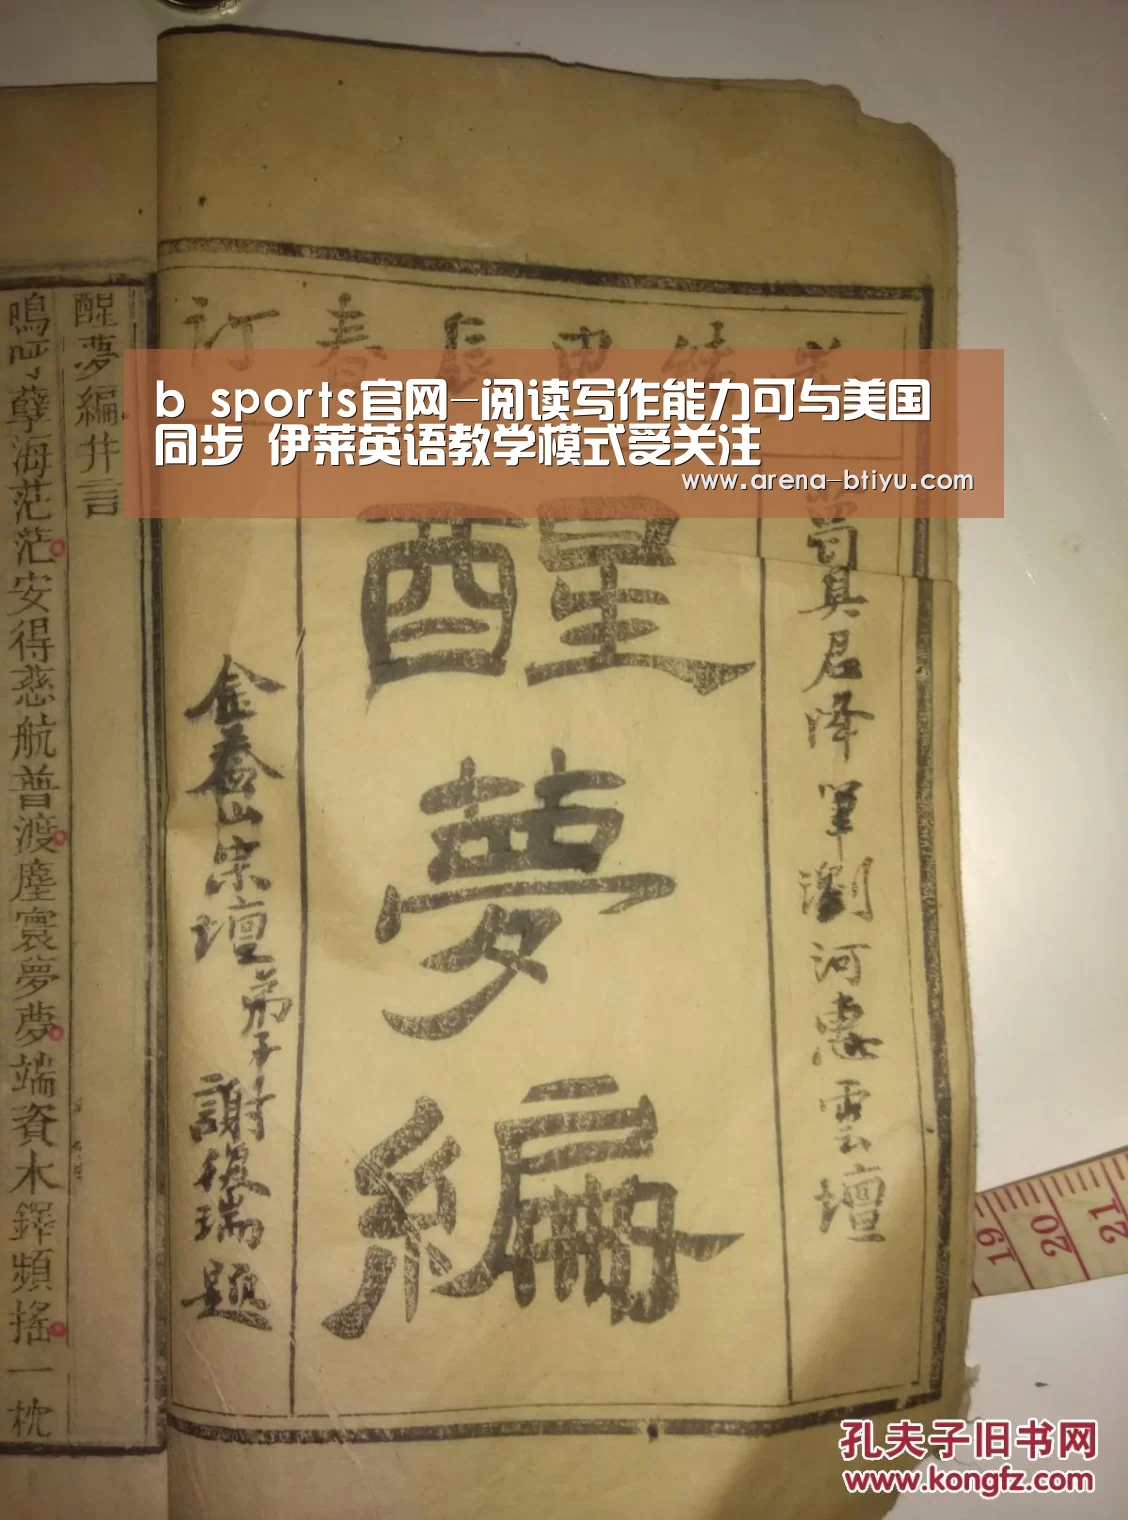 b sports官网-阅读写作能力可与美国
同步 伊莱英语教学模式受关注
www.arena-btiyu.com
辰春订
真君降筆瀏河惠雲壇
醒夢編
金養山宗壇弟子謝復瑞題
醒夢編弁言
嗚呼孽海茫茫安得慈航普渡塵寰夢夢端資木鐸頻搖一枕
19 20 21
孔夫子旧书网
www.kongfz.com